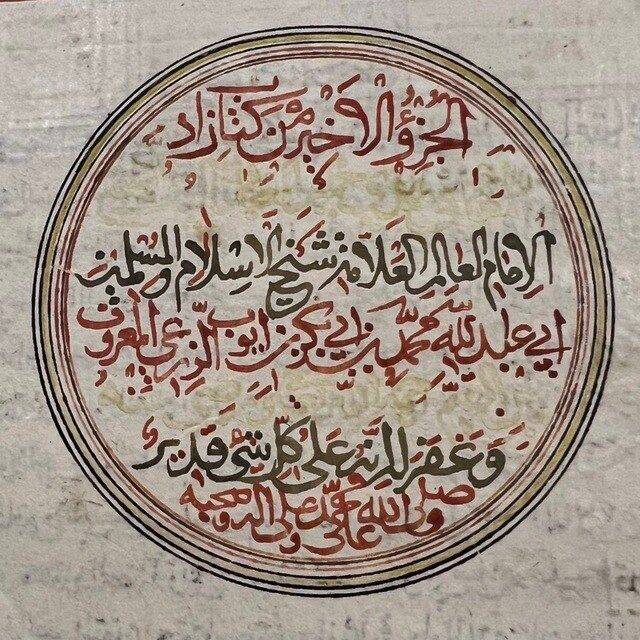 الجزؤ الاخير من كتاب زاد
الإمام العالم العلامة شيخ الإسلام والمسلمين
ابي عبد الله محمد بن ابي بكر بن ايوب الزرعي المعروف
وغفر له انه على كل شيء قدير
وصلى الله على محمد وعلى اله وصحبه